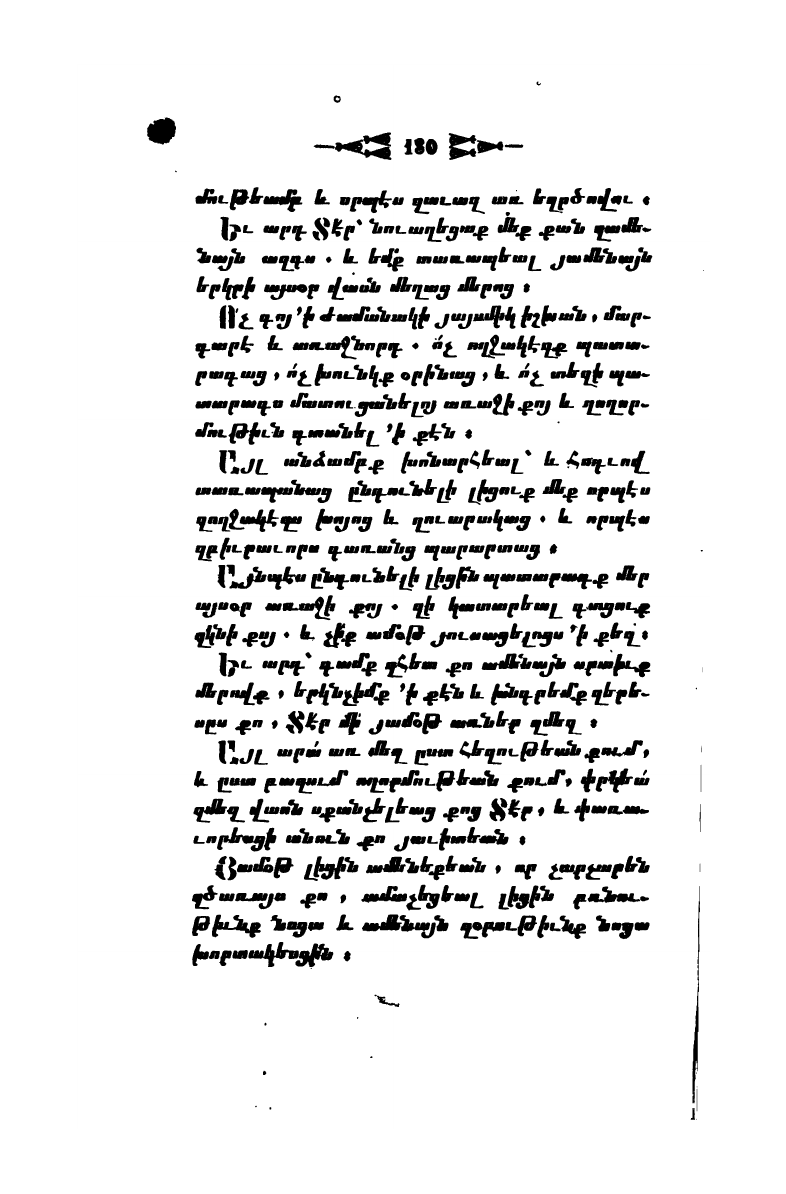 130
մութեամբ և որպէս զաւազ առ եզրծովու ։
Եւ արդ Տէր՝ նուաղեցաք մեք քան զամե-
նայն ազգս . և եմք տառապեալ յամենայն
երկրի այսօր վասն մեղաց մերոց ։
Ո՛չ գոյ ՚ի ժամանակի յայսմիկ իշխան, մար-
գարէ և առաջնորդ . ո՛չ ողջակէզք պատա-
րագաց, ո՛չ խունկք օրինաց, և ո՛չ տեղի պա-
տարագս մատուցանելոյ առաջի քոյ և ողոր-
մութիւն գտանել ՚ի քէն ։
Այլ անձամբք խոնարհեալ՝ և հոգւով
տառապանաց ընդունելի լիցուք մեք որպէս
զողջակէզս խոյոց և զուարակաց . և որպէս
զբիւրաւորս գառանց պարարտաց ։
Այնպէս ընդունելի լիցին պատարագք մեր
այսօր առաջի քոյ . զի կատարեալ գտցուք
զկնի քոյ . և չիք ամօթ յուսացելոցս ՚ի քեզ ։
Եւ արդ՝ գամք զհետ քո ամենայն սրտիւք
մերովք, երկնչիմք ՚ի քէն և խնդրեմք զերե-
սըս քո, Տէր մի՛ յամօթ առներ զմեզ ։
Այլ արա՛ առ մեզ ըստ հեզութեան քում,
և ըստ բազում ողորմութեան քում, փրկեա՛
զմեզ վասն սքանչելեաց քոց Տէր, և փառա-
ւորեսցի անուն քո յաւիտեան ։
Յամօթ լիցին ամենեքեան, որ չարչարեն
զծառայս քո, ամաչեցեալ լիցին բռնու-
թիւնք նոցա և ամենայն զօրութիւնք նոցա
խորտակեսցին ։